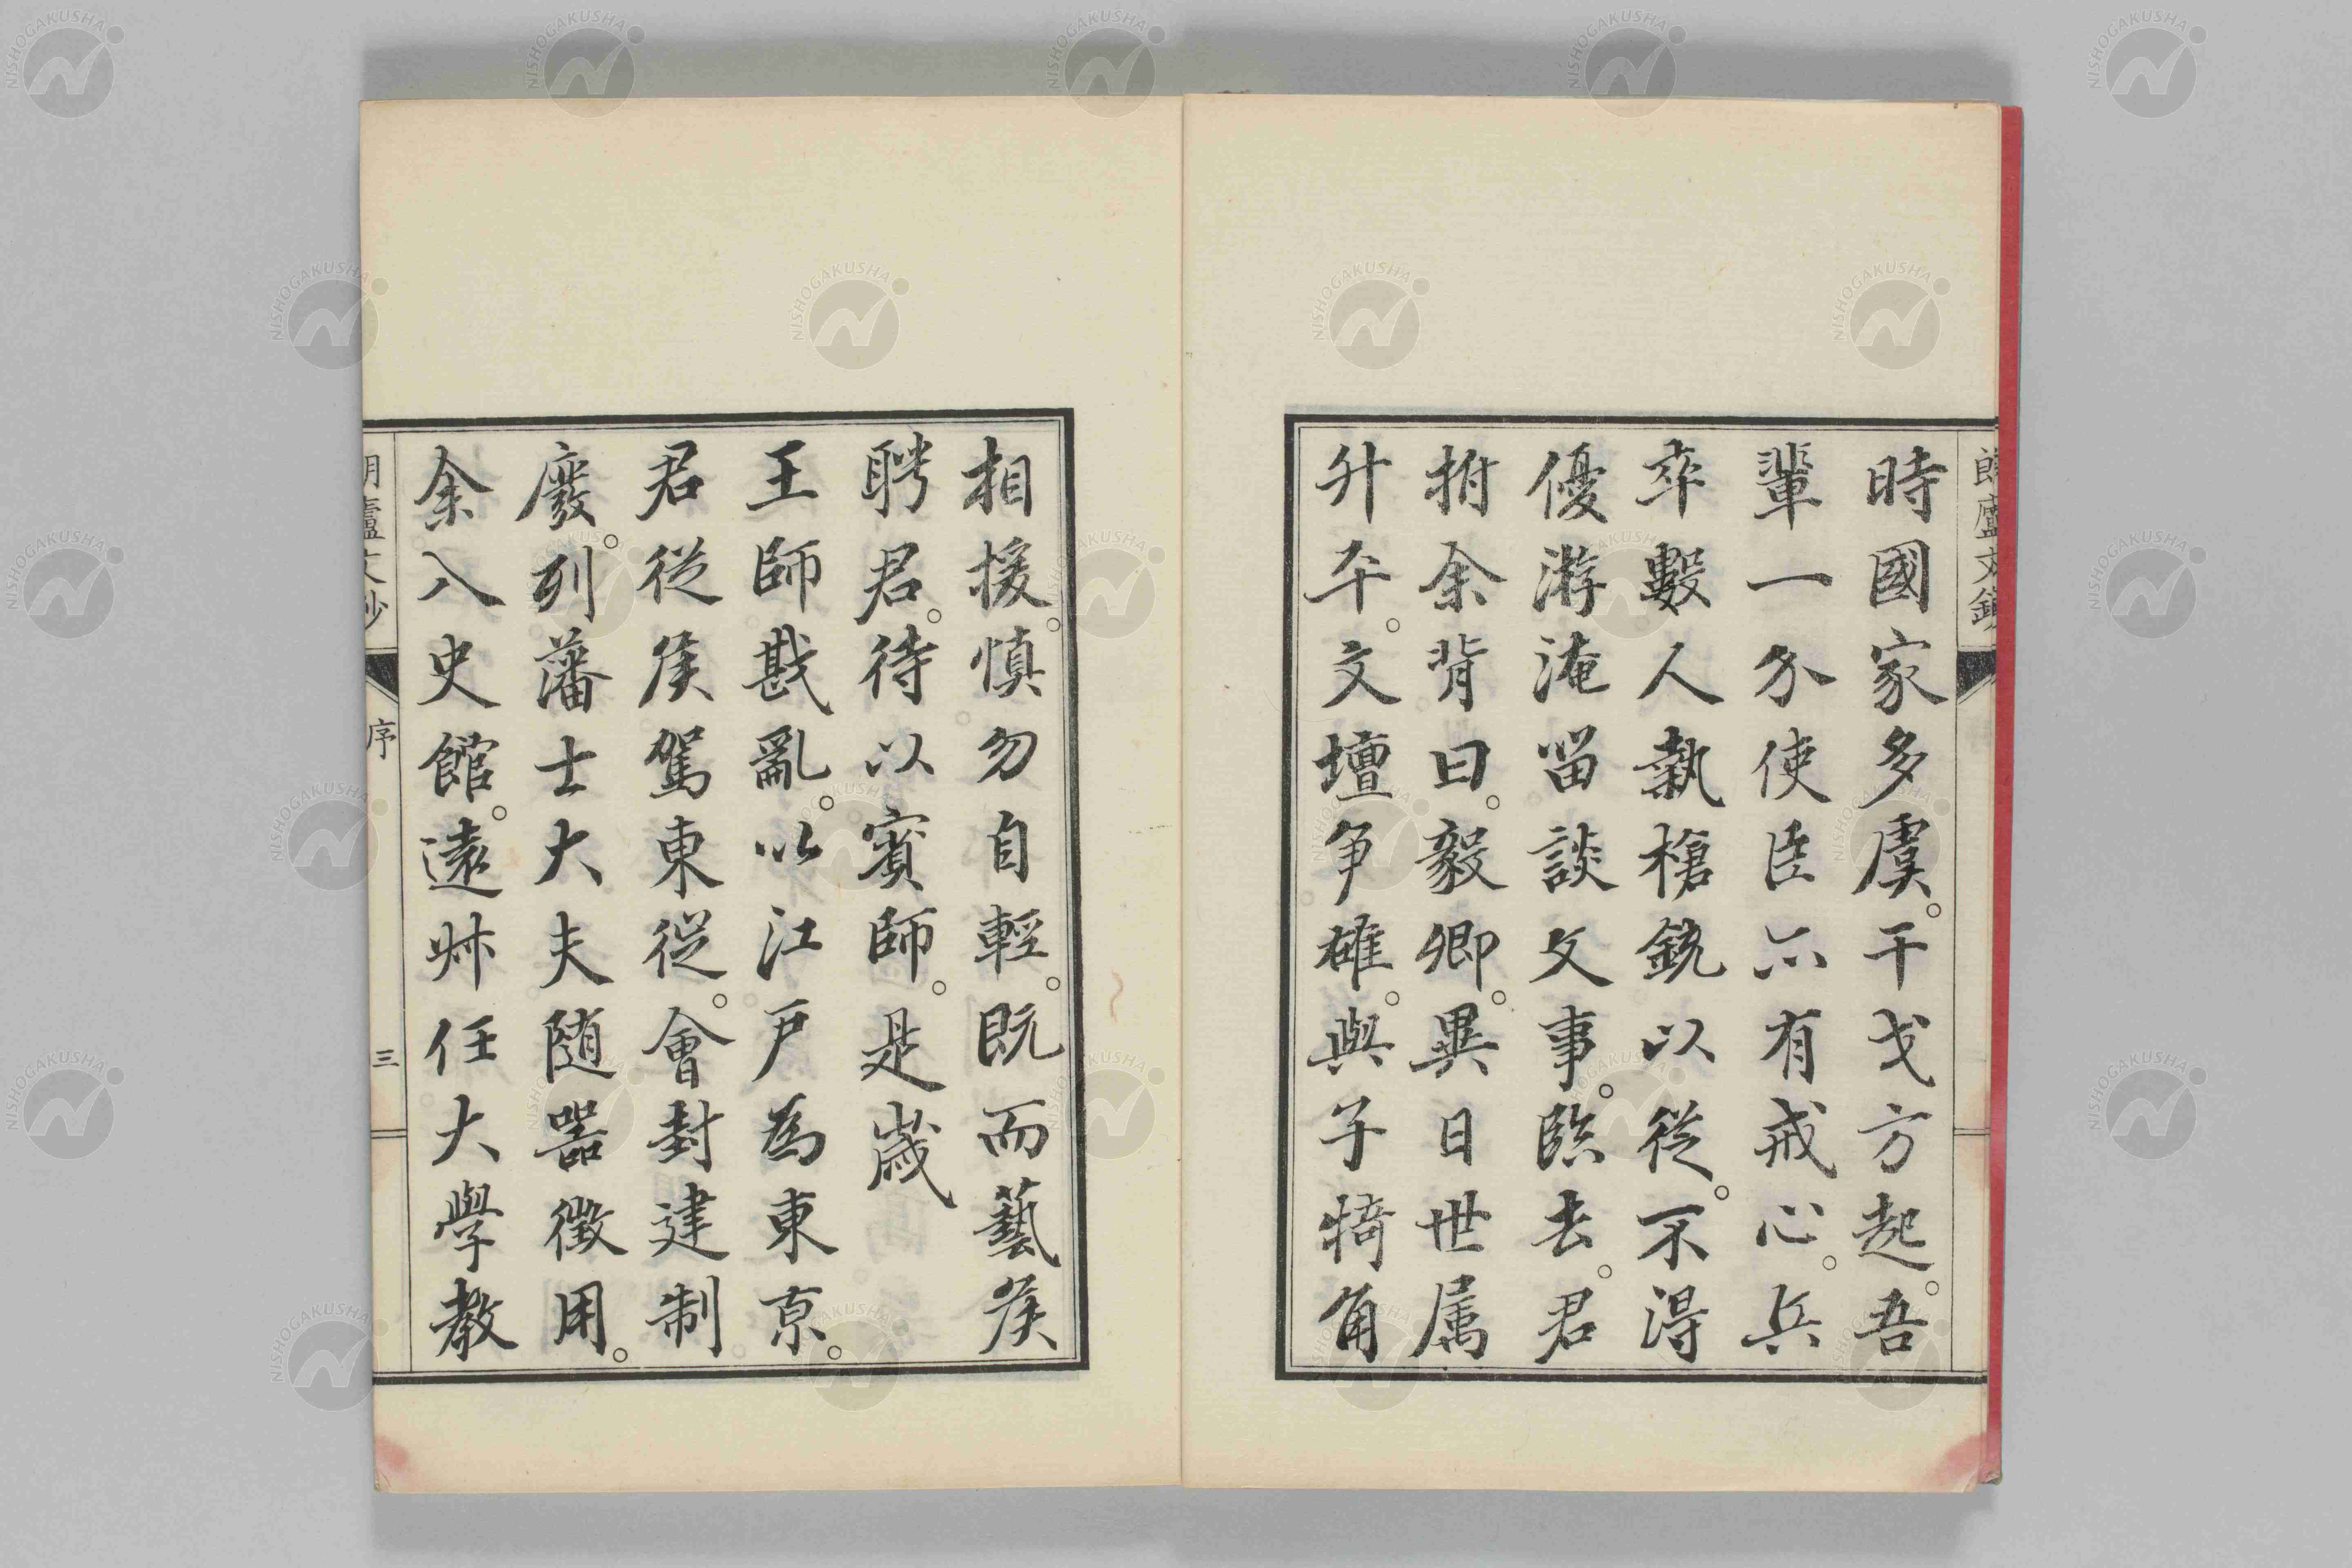 時國家多虞。干戈方起。吾
輩一介使臣亦有戒心。兵
卒數人執槍銃以從。不得
優游淹留談文事。臨去。君
拊余背曰。毅卿。異日世屬
升平。文壇爭雄。與子犄角
相援。慎勿自輕。既而藝侯
聘君。待以賓師。是歲
王師戡亂。以江戶為東京。
君從侯駕東從。會封建制
廢。列藩士大夫隨器徵用。
余入史館。遠叔任大學教
序
三
NISHOGAKUSHA